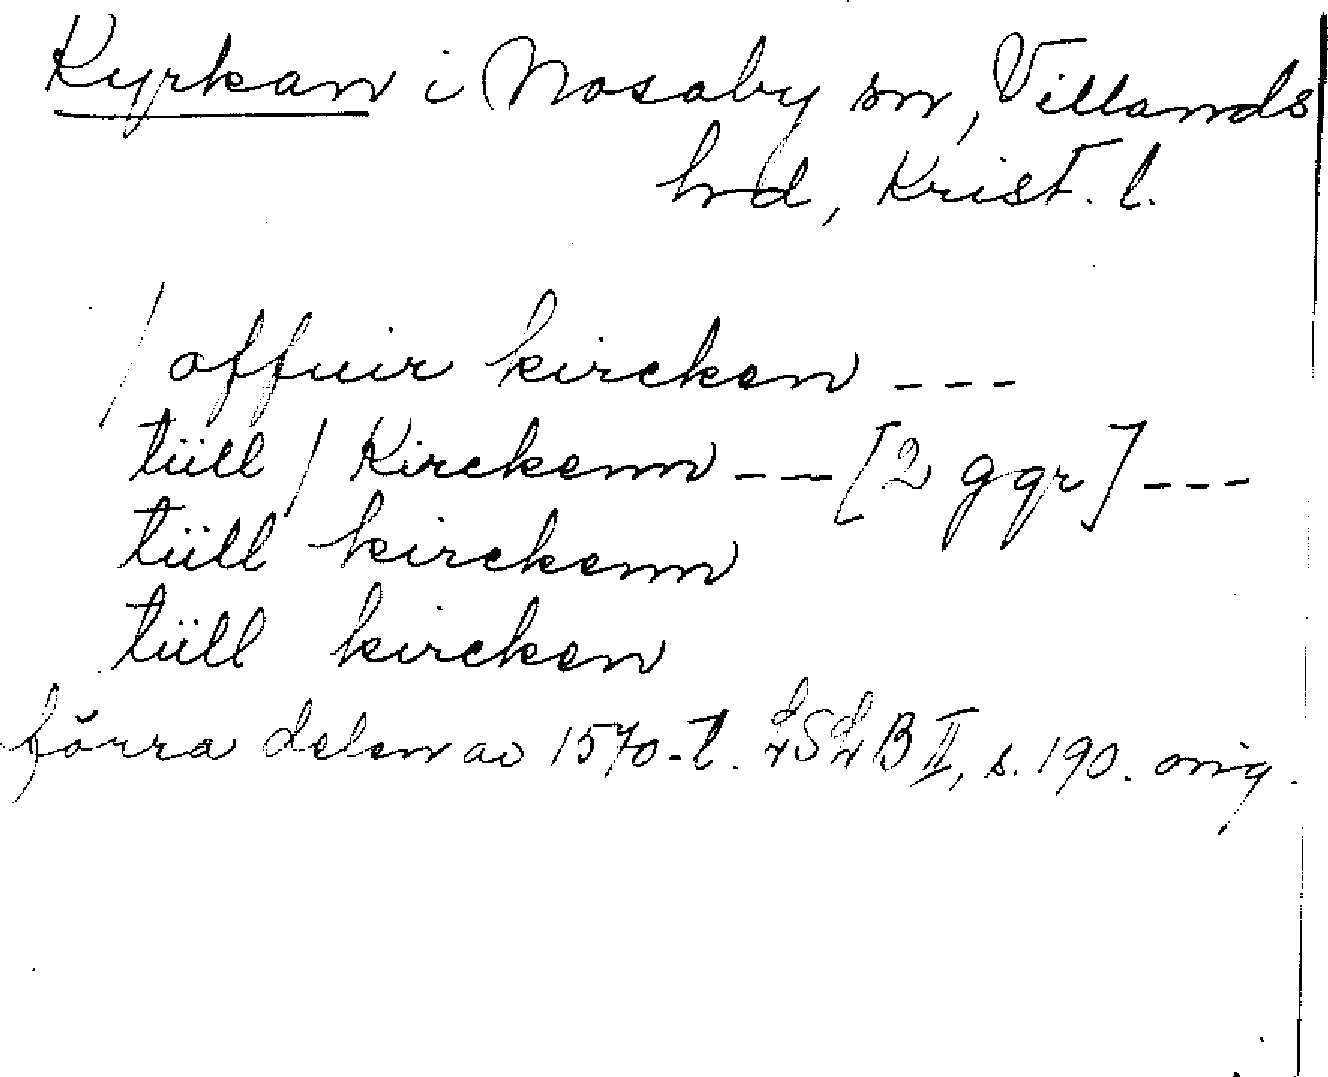 Kyrkan i Nosaby sn, Villands
hrd, Krist. l.
/ offuir kircken ---
tüll / Kirckenn --- [2 ggr] ---
tüll kirckenn
tüll kircken
förra delen av 1570-t. LSLB II, s. 190. orig.